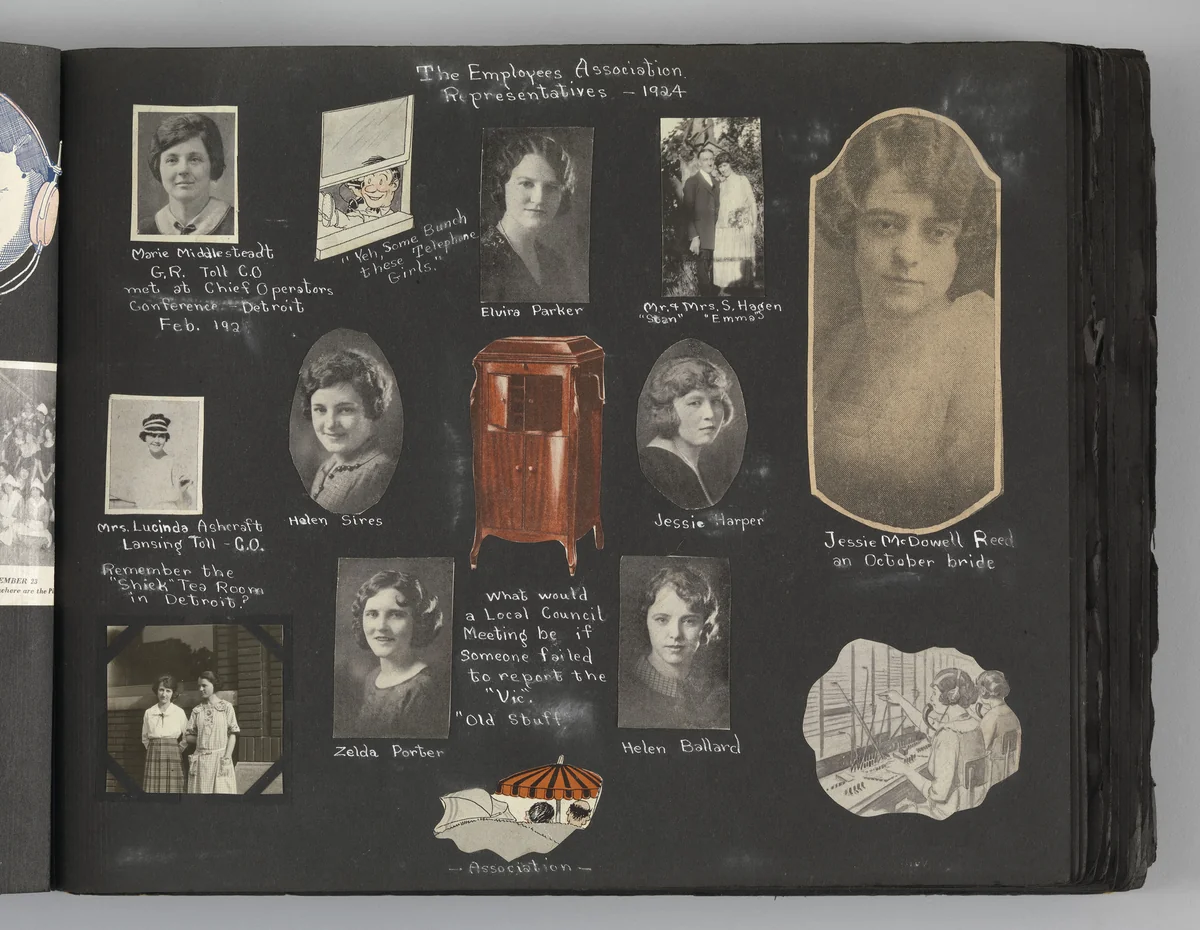 The Employees Association
Representatives - 1924
Marie Middlesteadt
G.R. Toll C.O
met at Chief Operators
Conference - Detroit
Feb. 192
"Yeh, Some Bunch
these Telephone
Girls."
Elvira Parker
Mr. & Mrs. S. Hagen
"Stan" "Emma"
Mrs. Lucinda Ashcraft
Lansing Toll - C.O.
Remember the
"Shiek" Tea Room
in Detroit?
Helen Sires
Jessie Harper
Jessie McDowell Reed
an October bride
What would
a Local Council
Meeting be if
Someone failed
to report the
"Vic".
"Old Stuff
Zelda Porter
Helen Ballard
- Association -
EMBER 23
where are the